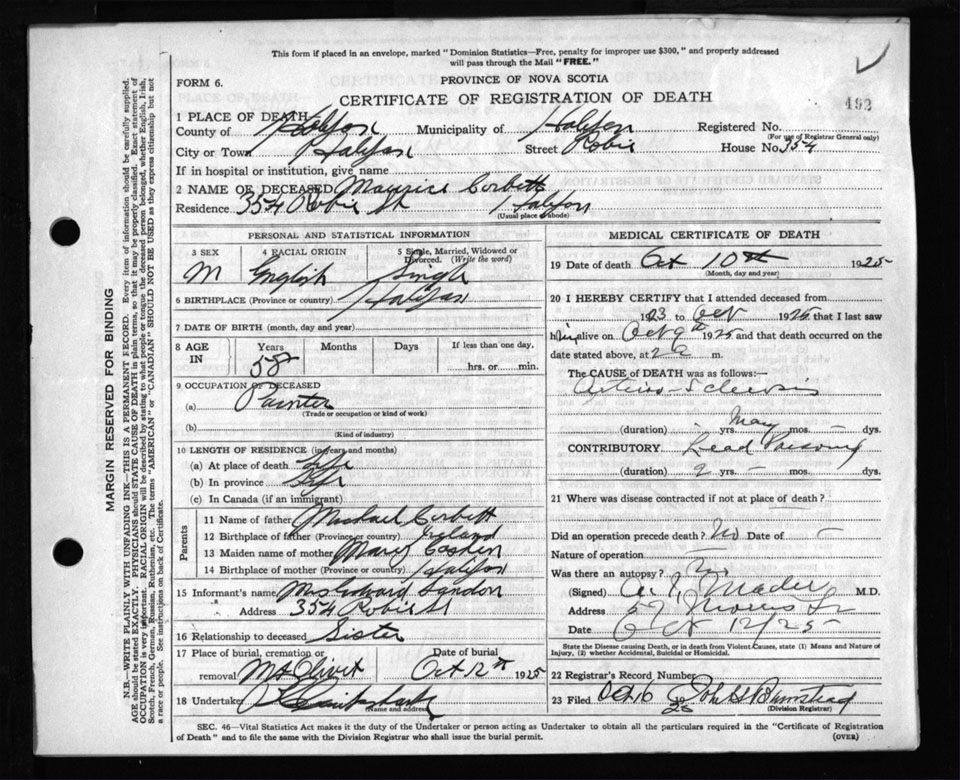 This form if placed in an envelope, marked "Dominion Statistics—Free, penalty for improper use $300," and properly addressed
will pass through the Mail "FREE."
FORM 6.
PROVINCE OF NOVA SCOTIA
CERTIFICATE OF REGISTRATION OF DEATH
492
1 PLACE OF DEATH
County of Halifax Municipality of Halifax Registered No.
(For use of Registrar General only)
City or Town Halifax Street Robie House No. 354
If in hospital or institution, give name
2 NAME OF DECEASED Maurice Corbett
Residence 354 Robie St Halifax
(Usual place of abode)
PERSONAL AND STATISTICAL INFORMATION
3 SEX 4 RACIAL ORIGIN 5 Single, Married, Widowed or
Divorced. (Write the word)
M English Single
6 BIRTHPLACE (Province or country) Halifax
7 DATE OF BIRTH (month, day and year)
8 AGE IN Years Months Days If less than one day,
58 hrs. or min.
9 OCCUPATION OF DECEASED
(a) Painter
(Trade or occupation or kind of work)
(b)
(Kind of industry)
10 LENGTH OF RESIDENCE (in years and months)
(a) At place of death Life
(b) In province Life
(c) In Canada (if an immigrant)
Parents
11 Name of father Michael Corbett
12 Birthplace of father (Province or country) Ireland
13 Maiden name of mother Mary
14 Birthplace of mother (Province or country) Halifax
15 Informant's name Mrs Edward
Address 354 Robie St
16 Relationship to deceased Sister
17 Place of burial, cremation or Date of burial
removal Mt Olivet Oct 12th 1925
18 Undertaker
(Name and address)
MEDICAL CERTIFICATE OF DEATH
19 Date of death Oct 10th 1925
(Month, day and year)
20 I HEREBY CERTIFY that I attended deceased from
1923 to Oct 1925 that I last saw
him alive on Oct 9th 1925 and that death occurred on the
date stated above, at 2 a m.
The CAUSE OF DEATH was as follows:—
Arterio-Sclerosis
(duration) Many yrs. mos. — dys.
CONTRIBUTORY Lead Poisoning
(duration) 2 yrs. — mos. — dys.
21 Where was disease contracted if not at place of death?
Did an operation precede death? No Date of —
Nature of operation —
Was there an autopsy? No
(Signed) A. I. Mader M.D.
Address 57 Morris St
Date Oct 12/25
State the Disease causing Death, or in death from Violent Causes, state (1) Means and Nature of
Injury, (2) whether Accidental, Suicidal or Homicidal.
22 Registrar's Record Number
23 Filed Oct 16 1925 John H Barnstead
(Division Registrar)
SEC. 46—Vital Statistics Act makes it the duty of the Undertaker or person acting as Undertaker to obtain all the particulars required in the "Certificate of Registration
of Death" and to file the same with the Division Registrar who shall issue the burial permit.
(OVER)
MARGIN RESERVED FOR BINDING
N.B.—WRITE PLAINLY WITH UNFADING INK—THIS IS A PERMANENT RECORD. Every item of information should be carefully supplied.
AGE should be stated EXACTLY. PHYSICIANS should STATE CAUSE OF DEATH in plain terms, so that it may be properly classified. Exact statement of
OCCUPATION is very important. RACIAL ORIGIN will be described by stating to what people or tongue the deceased person belonged, whether English, Irish,
Scotch, French, German, Russian, Ruthenian, etc. The terms "AMERICAN" or "CANADIAN" SHOULD NOT BE USED as they express citizenship but not
a race or people. See instructions on back of Certificate.